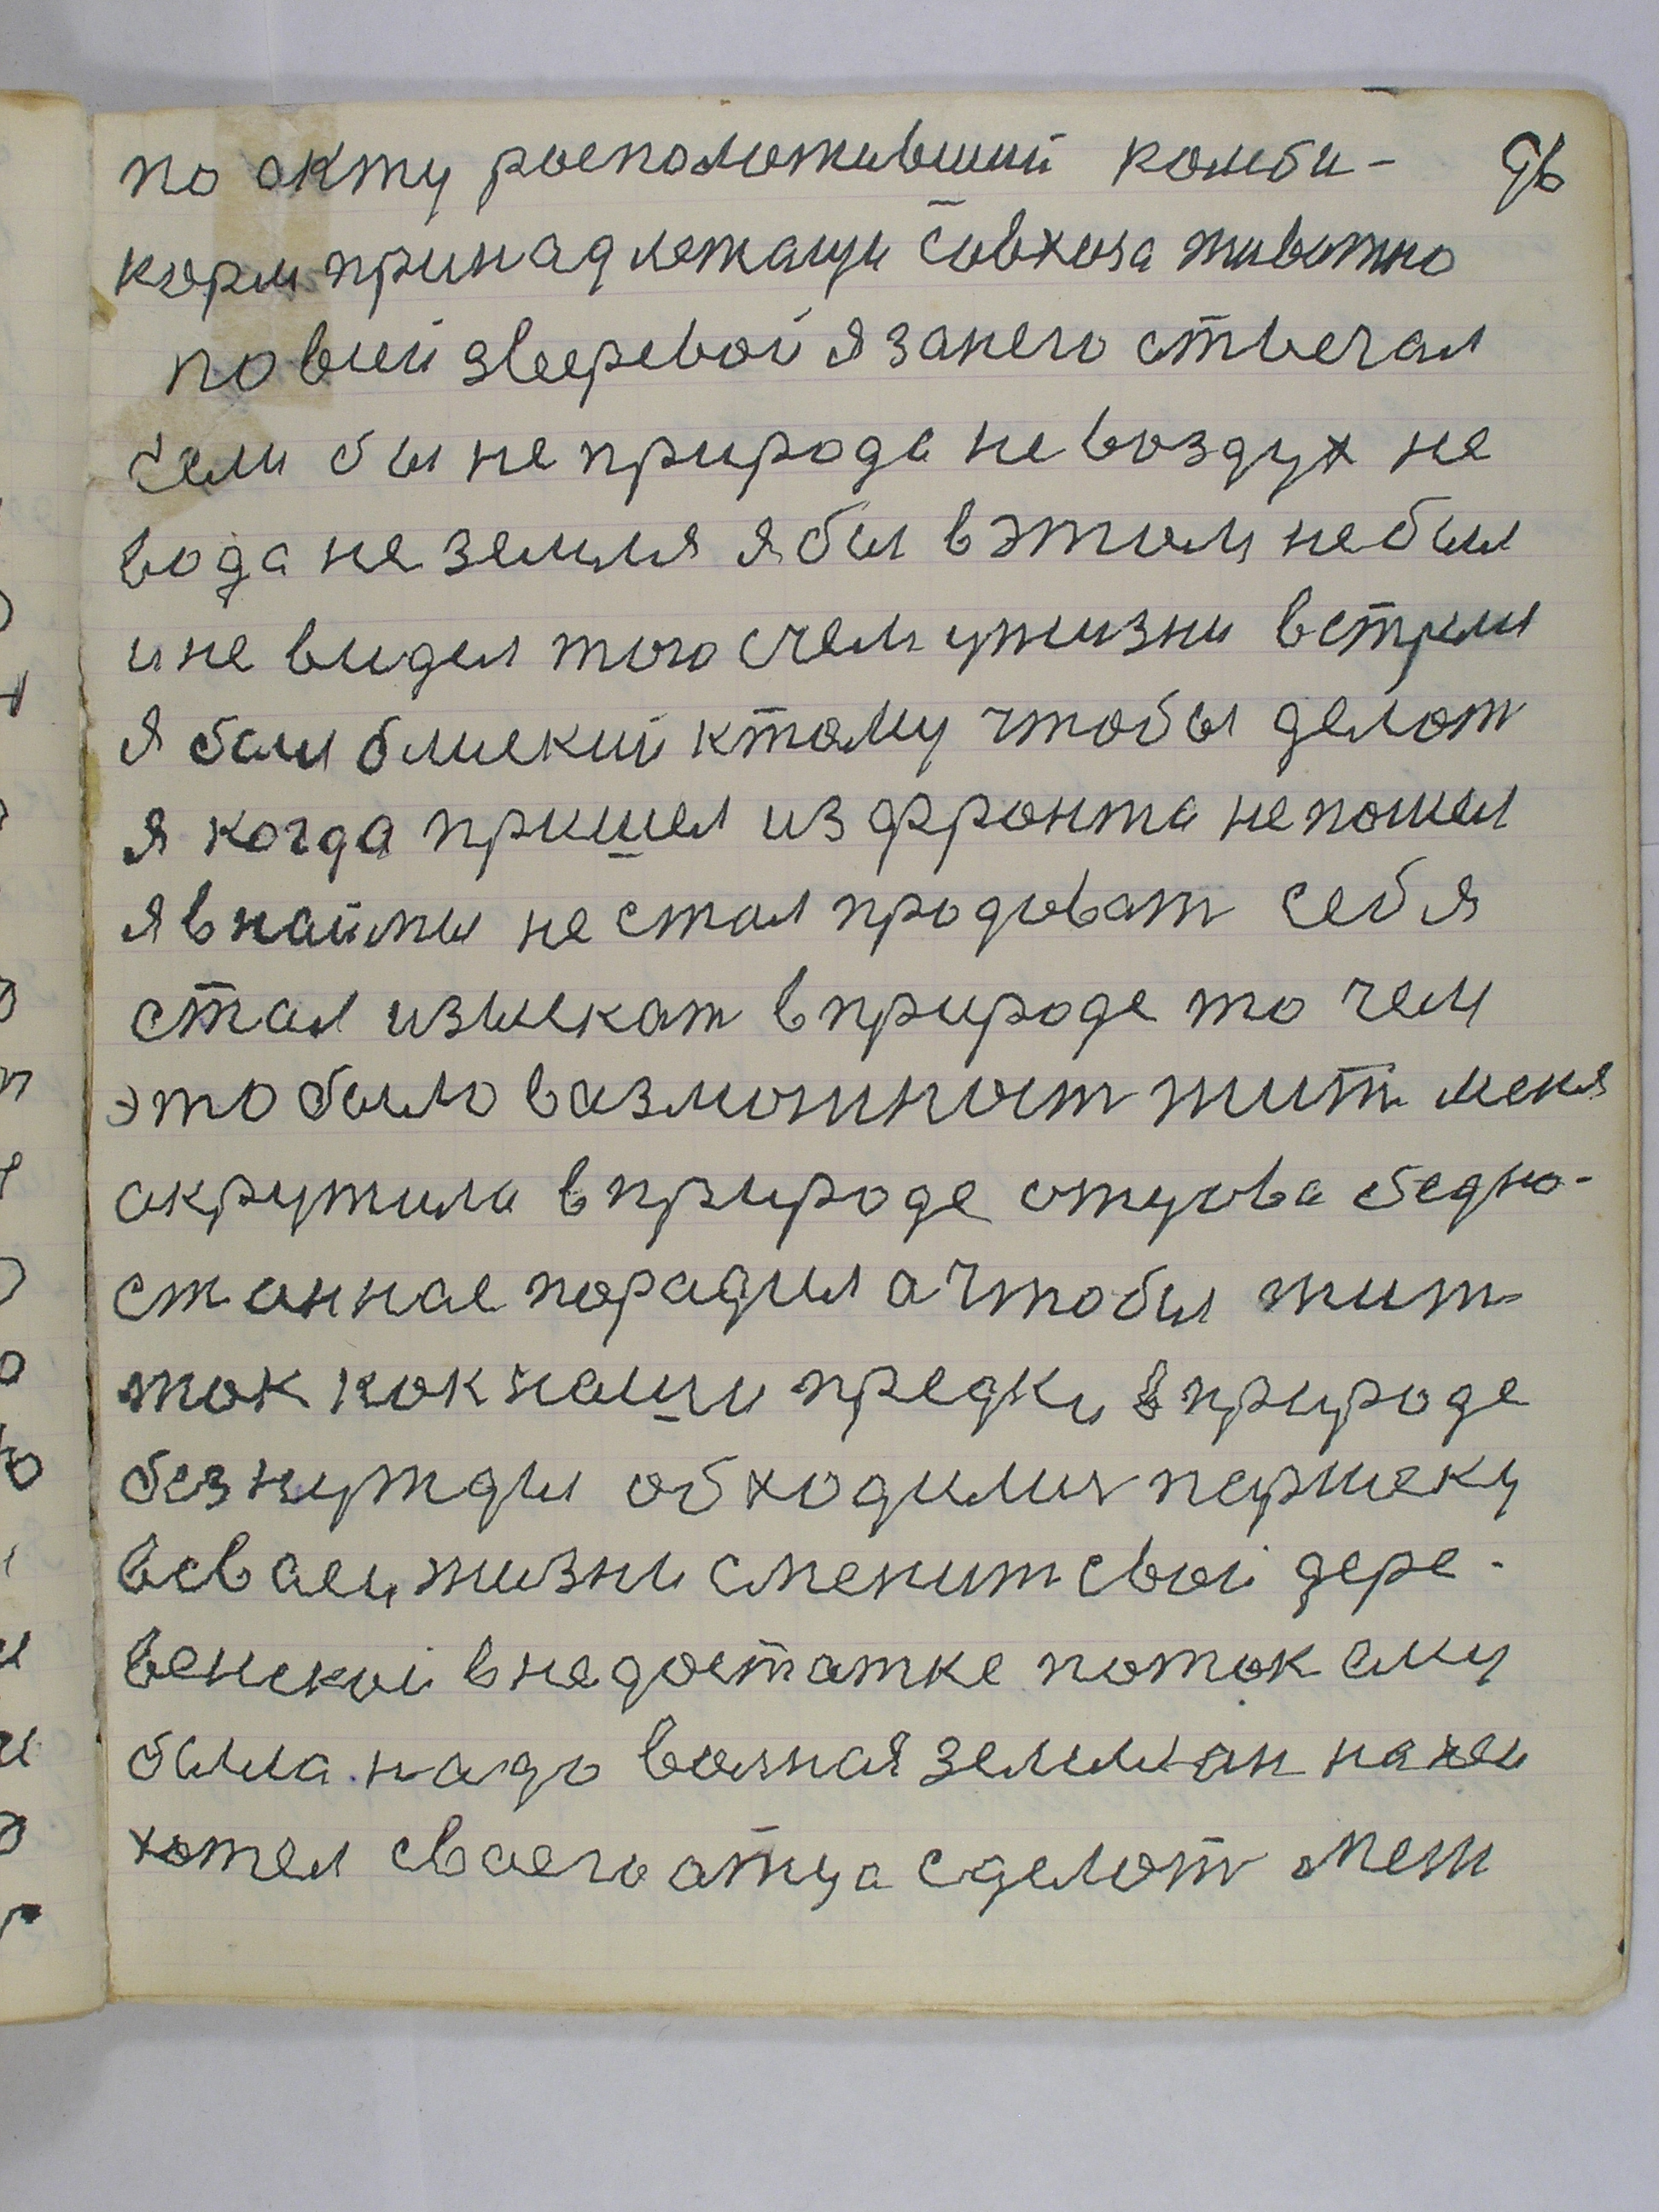 по окту росположивший комби- 96
корм принадлежащи совхоза животно
повий зверевой я занего отвечал
если бы не природа не воздух не
вода не земля я бы в этом небыл
и не видел того счем ужизни встрели
я был блиский ктому чтобы делот
я когда пришел из фронта непошел
я внаймы не стал продоват себя
стал изыскат вприроде то чем
это было возможност жит меня
окружила вприроде отцова бедно-
станное порадила чтобы жит
ток кок наши предки вприроде
безнужды обходилися
всваеи жизни сменит свои дере-
венской внедостатке поток ему
была надо волная земли он на ней
хотел сваего отца сделот меж